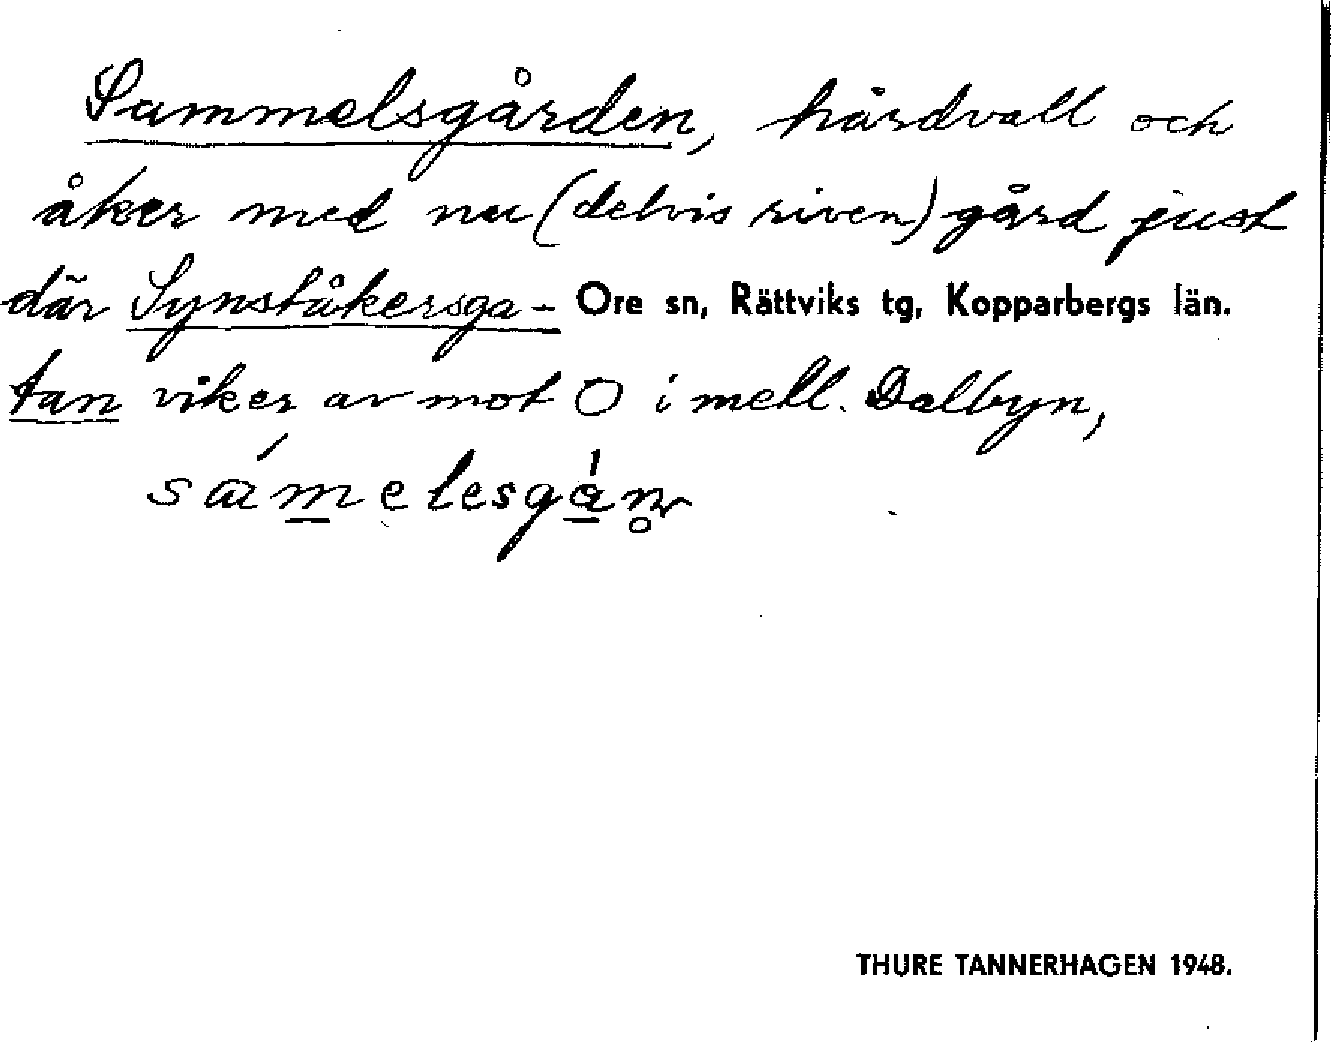 Sammelsgården, hårdvall och
åker med nu (delvis riven) gård just
där Synståkersga- Ore sn, Rättviks tg, Kopparbergs län.
tan viker av mot O i mell. Dalbyn,
THURE TANNERHAGEN 1948.